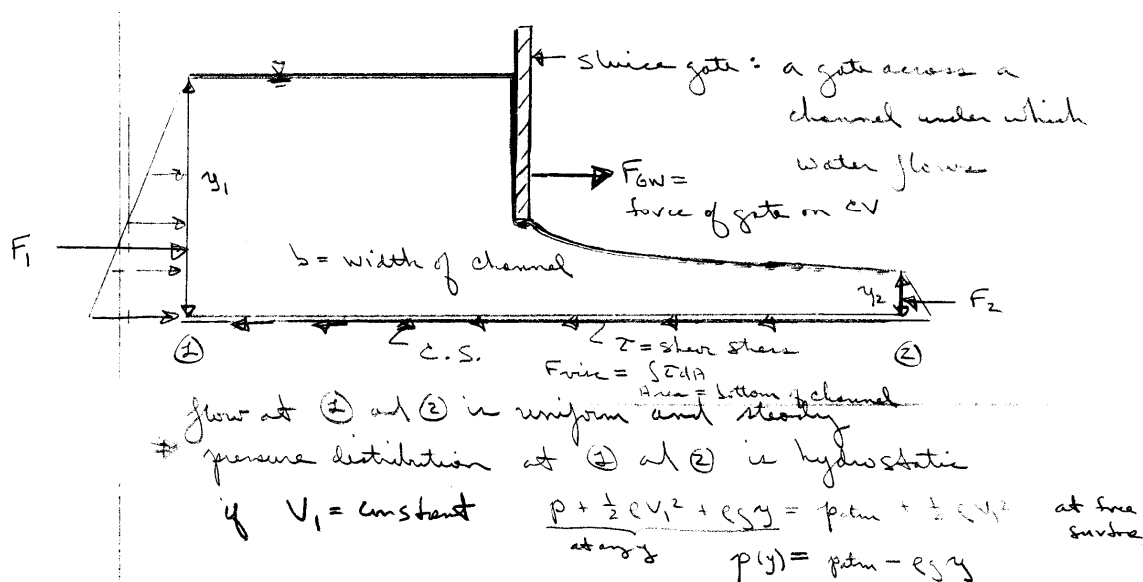 sluice gate: a gate across a
channel under which
water flows
F_GW =
force of gate on CV
y₁
F₁
b = width of channel
y₂
F₂
①
C.S.
τ = shear stress
②
F_visc = ∫τdA
Area = bottom of channel
flow at ① and ② is uniform and steady
* pressure distribution at ① and ② is hydrostatic
if V₁ = constant p + ½ρV₁² + ρgy = patm + ½ρV₁² at free
surface
at any y
p(y) = patm - ρgy